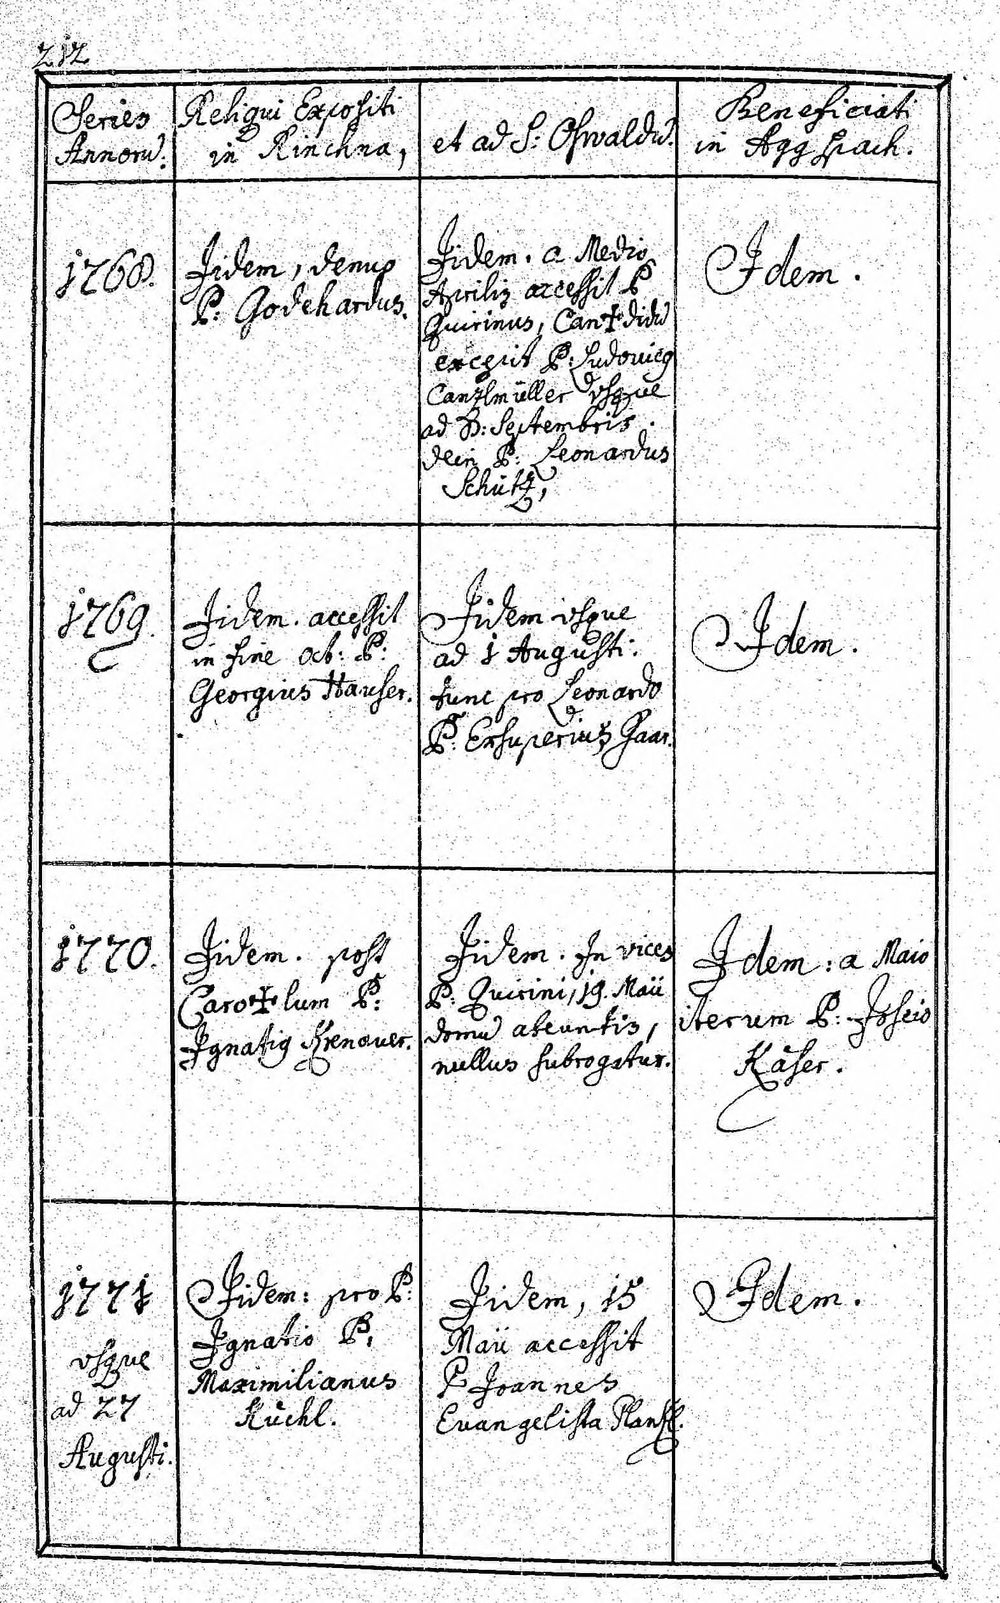 212
Series
Annorū.
Religui Expositi
in Rinchna,
et ad S: Oswaldū.
Beneficiati
in Aggspach.
1768.
Iidem, denuo
P: Godehardus.
Iidem. a Medio
Aprilis accessit P
Quirinus, Can✝didū
excepit P: Ludovicg
Canzlmüller vsque
ad D: Septembris.
dein P: Leonardus
Schütz,
Idem.
1769.
Iidem. accessit
in fine oct: P:
Georgius Hauser.
Iidem vsque
ad 1 Augusti.
tunc pro Leonardo
P: Exsuperius Gaar.
Idem.
1770.
Iidem. post
Caro✝lum P:
Ignatig Krenauer.
Iidem. In vices
P: Quirini, 19. Maii
domū abeuntis,
nullus subrogatur.
Idem: a Maio
iterum P:
Käser.
1771
vsque
ad 27
Augusti.
Iidem: pro P:
Ignatio P,
Maximilianus
Küchl.
Iidem, 15
Maii accessit
P Joannes
Evangelista
Idem.